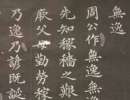 無逸
周公作無逸無逸
先知稼穡之艱
厥父母勤勞稼
乃逸乃諺既誕